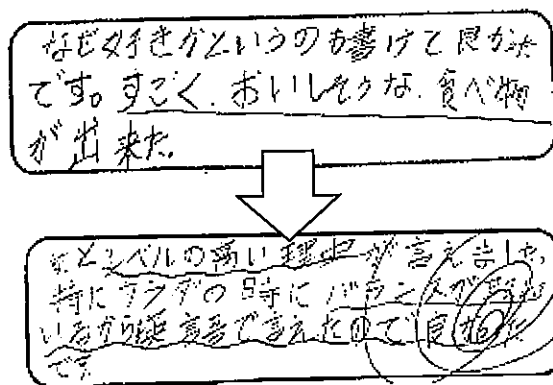 なぜ好きかというのも書けて良かった
です。すごく、おいしそうな、食べ物
が出来た。
とレベルの高い理由が言えました
特にサラダの時にバランスが
いるから英語で言えたので良かった
です